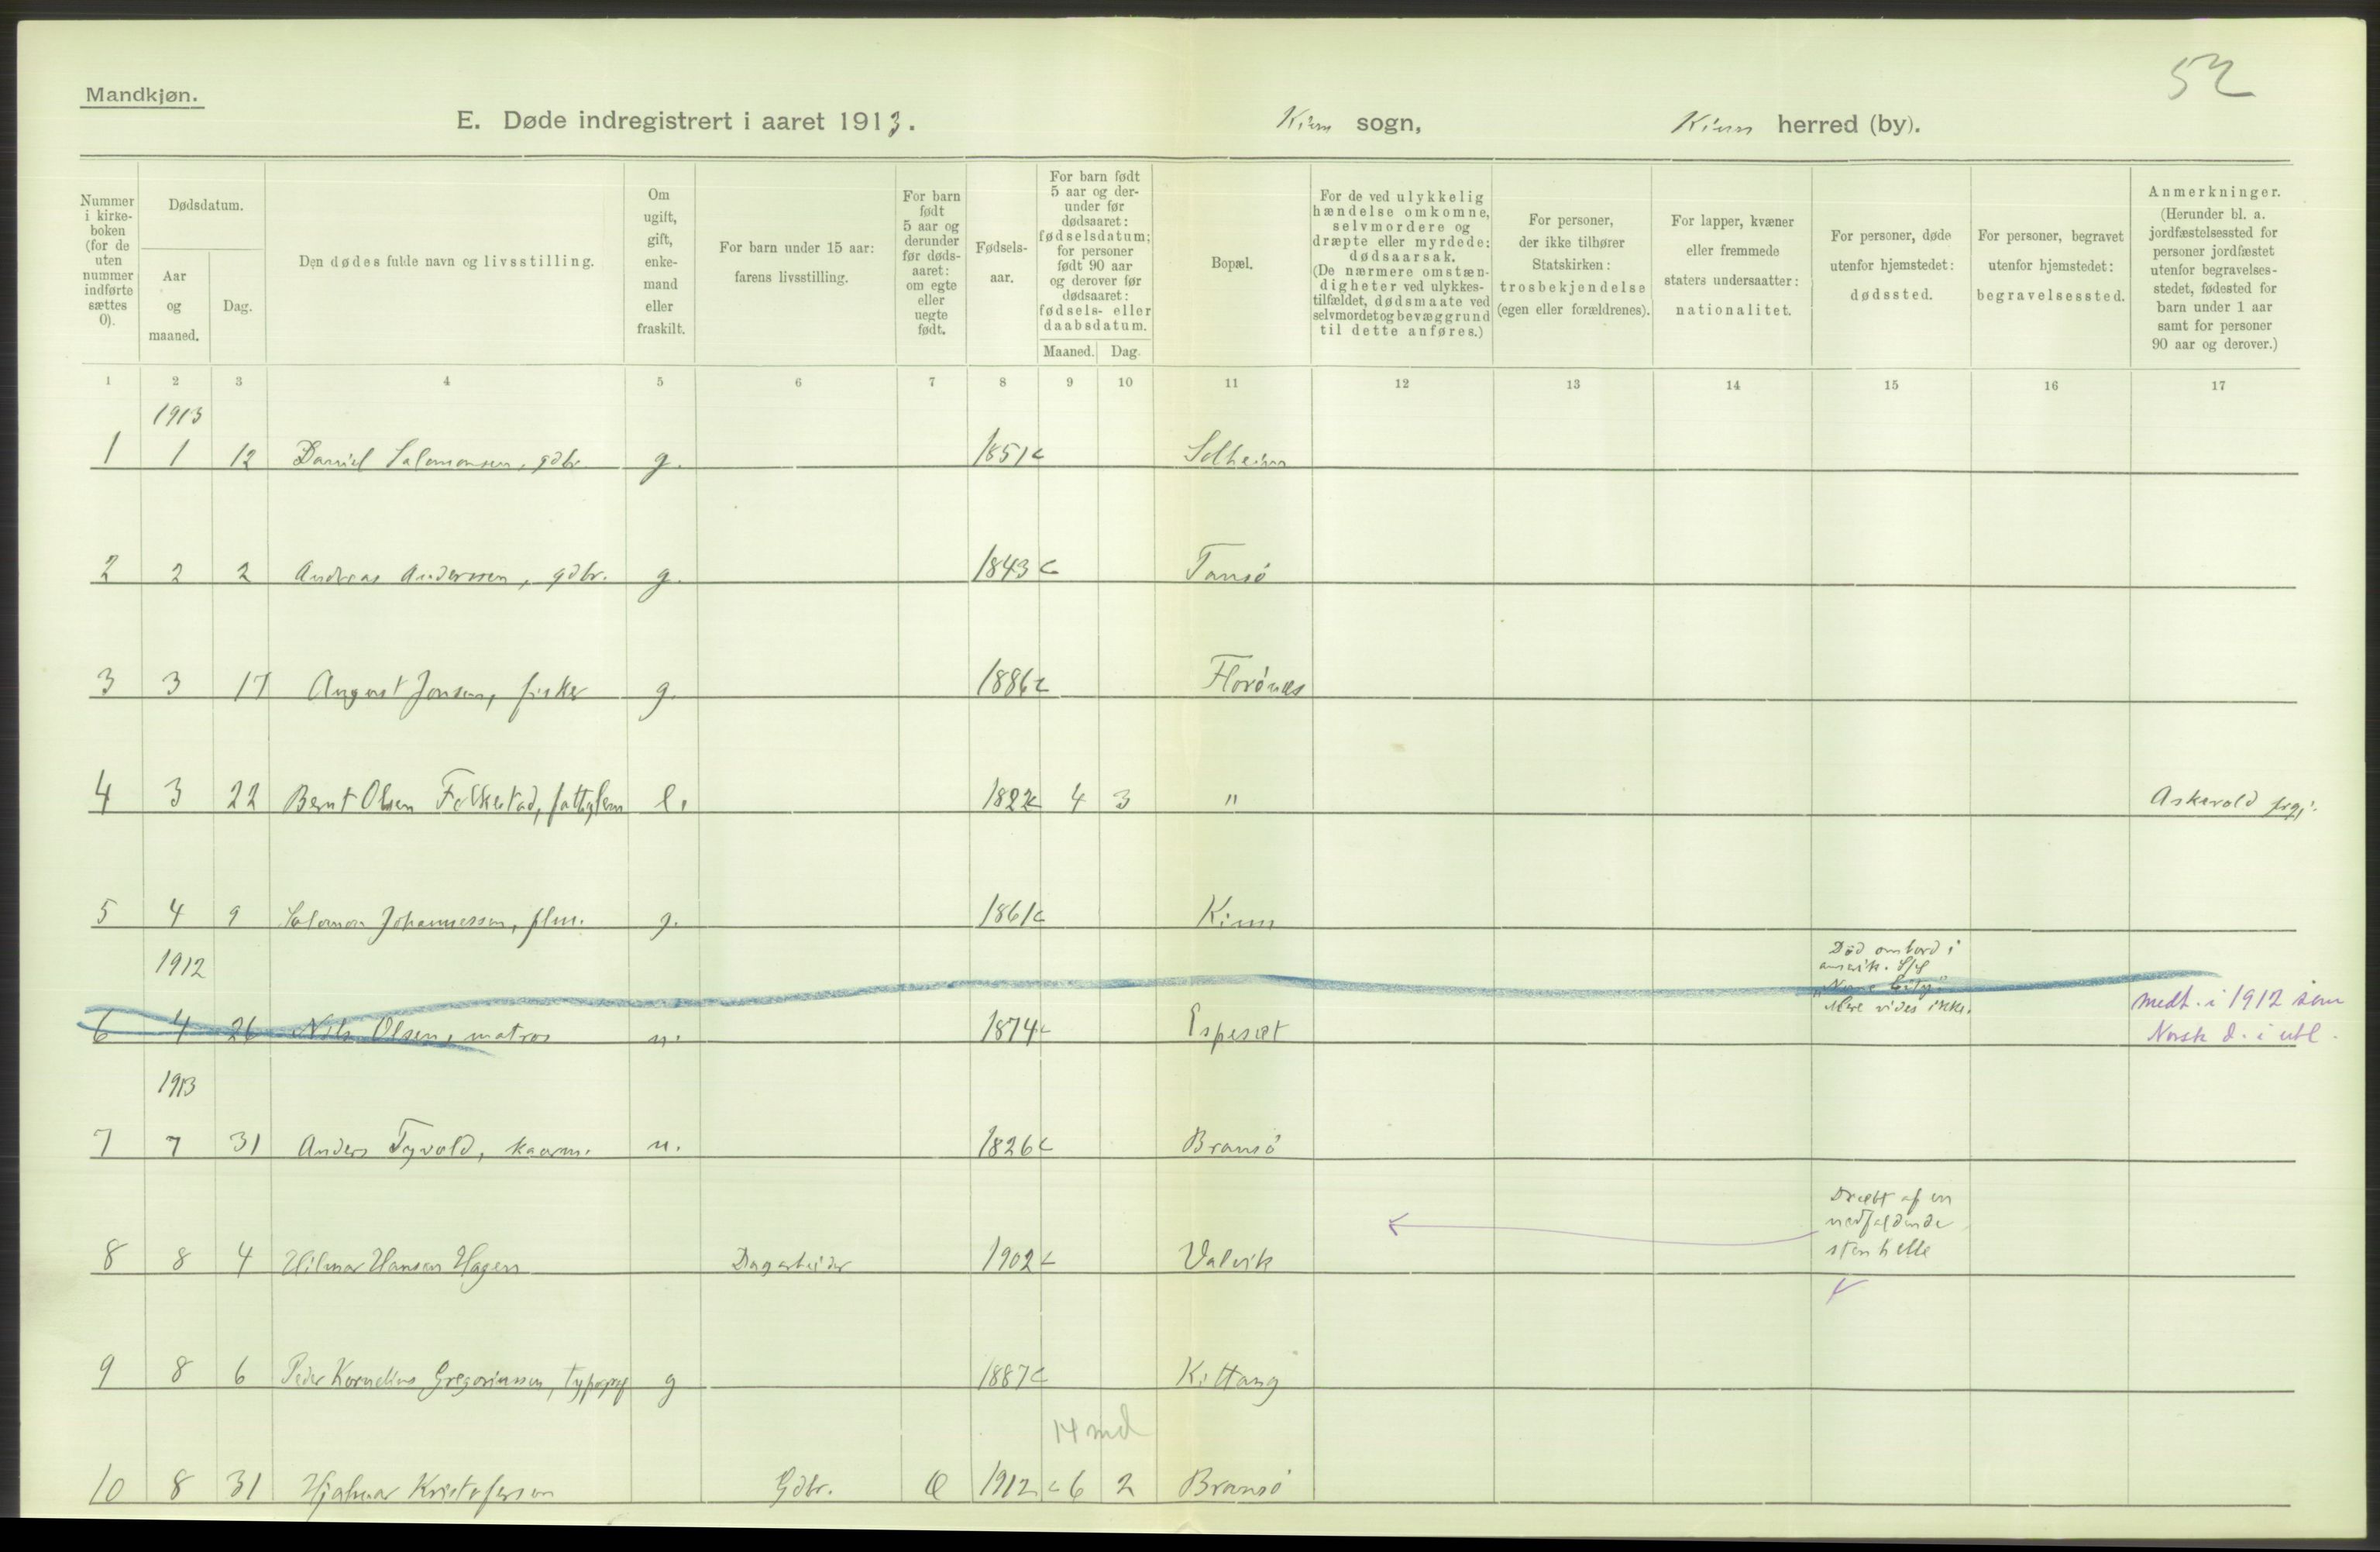 52
Mandkjøn.
E. Døde indregistrert i aaret 1913. Kinn sogn, Kinn herred (by).
Nummer i kirkeboken (for de uten nummer indførte sættes 0).
Dødsdatum.
Aar og maaned.
Dag.
Den dødes fulde navn og livsstilling.
Om ugift, gift, enkemand eller fraskilt.
For barn under 15 aar: farens livsstilling.
For barn født 5 aar og derunder før dødsaaret: om egte eller uegte født.
Fødselsaar.
For barn født 5 aar og derunder før dødsaaret: fødselsdatum; for personer født 90 aar og derover før dødsaaret: fødsels- eller daabsdatum.
Maaned. Dag.
Bopæl.
For de ved ulykkelig hændelse omkomne, selvmordere og dræpte eller myrdede: dødsaarsak. (De nærmere omstændigheter ved ulykkestilfældet, dødsmaate ved selvmordet og bevæggrund til dette anføres.)
For personer, der ikke tilhører Statskirken: trosbekjendelse (egen eller forældrenes).
For lapper, kvæner eller fremmede staters undersaatter: nationalitet.
For personer, døde utenfor hjemstedet: dødssted.
For personer, begravet utenfor hjemstedet: begravelsessted.
Anmerkninger. (Herunder bl. a. jordfæstelsessted for personer jordfæstet utenfor begravelsesstedet, fødested for barn under 1 aar samt for personer 90 aar og derover.)
1 2 3 4 5 6 7 8 9 10 11 12 13 14 15 16 17
1913
1 1 12 Daniel Salomonsen, gdbr. g. 1851 Solheim
2 2 2 Andreas Anderssen, gdbr. g. 1843 Tansø
3 3 17 August Jonsen, fisker g. 1886 Florønes
4 3 22 Bernt Olsen Folkestad, fattiglem e. 1822 4 3 " Askevold prgj.
5 4 9 Salomon Johannessen, plm. g. 1861 Kinn
1912
Død ombord i
amerik. S/S
Mere vides ikke.
medt. i 1912 som
Norsk d. i utl.
6 4 26 Nils Olsen, matros u. 1874 Espeset
1913
7 7 31 Anders Tyvold, kaarm. u. 1826 Bransø
Dræbt af en
nedfaldende
stenhelle
8 8 4 Hilmar Hansen Hagen Dagarbeider 1902 Valvik
9 8 6 Peder Kornelius Gregoriussen, typograf g 1887 Kittang
14 md
10 8 31 Hjalmar Kristofersen Gdbr. 1912 6 2 Bransø